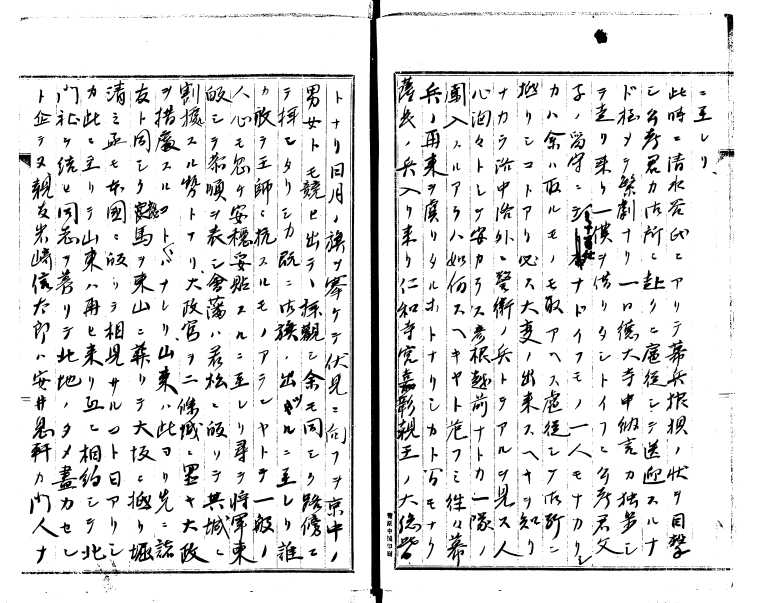 ニ至レリ
此時ニ清水谷氏ニアリテ幕兵根拠ノ状ヲ目撃
シ公考君カ御所ニ赴クニ扈従シテ送迎スルナ
ド極メテ繁劇ナリ一日徳大寺中納言カ独歩シ
テ走リ来リ一僕ヲ借リタシトイフニ公考君父
子ノ留守ニシナドイフモノ一人モナカリシ
カハ余ハ取ルモノモ取アヘス扈従シテ御所ニ
極リシコトアリ必ス大変ノ出来スヘキヲ知リ
ナカラ洛中洛外ニ警衛ノ兵トテアルヲ見ス人
心洶々トシテ安カラス彦根越前ナトカ一隊ノ
園入スルアラハ如何スヘキヤト危フミ往々幕
兵ノ再東ヲ虞リタルホトナリシカト万モナク
薩長ノ兵入リ来リ仁和寺宮嘉彰親王ノ大総督
トナリ日月ノ旗ヲ搴ケテ伏見ニ向フヲ京中ノ
男女トモ競ヒ出テ拝観シ余モ同シク路傍ニ
テ拝シタリシカ既ニ御旗ノ出ツルニ至レリ誰
カ敢テ王師ニ抗スルモノアランヤトテ一般ノ
人心モ忽チ安穏安貼スルニ至レリ尋テ将軍東
帰シテ恭順ヲ表シ会藩ハ若松ニ帰リテ其城ニ
割拠スル勢トナリ大政官ヲ二條城ニ置キ大政
ヲ措置スルコトハナレリ山東ハ此ヨリ先ニ諸
友ト同シク馬ヲ東山ニ葬リテ大坂ニ極リ堀
清ミ亦モ本国ニ帰リテ相見サルコト日アリシ
カ此ニ至リテ山東ハ再ヒ来リ互ニ相約シテ北
門社ヲ結ヒ同志ヲ募リテ此地ノタメ尽力セン
ト企テヌ親友岩崎信太郎ハ安井息軒カ門人ナ